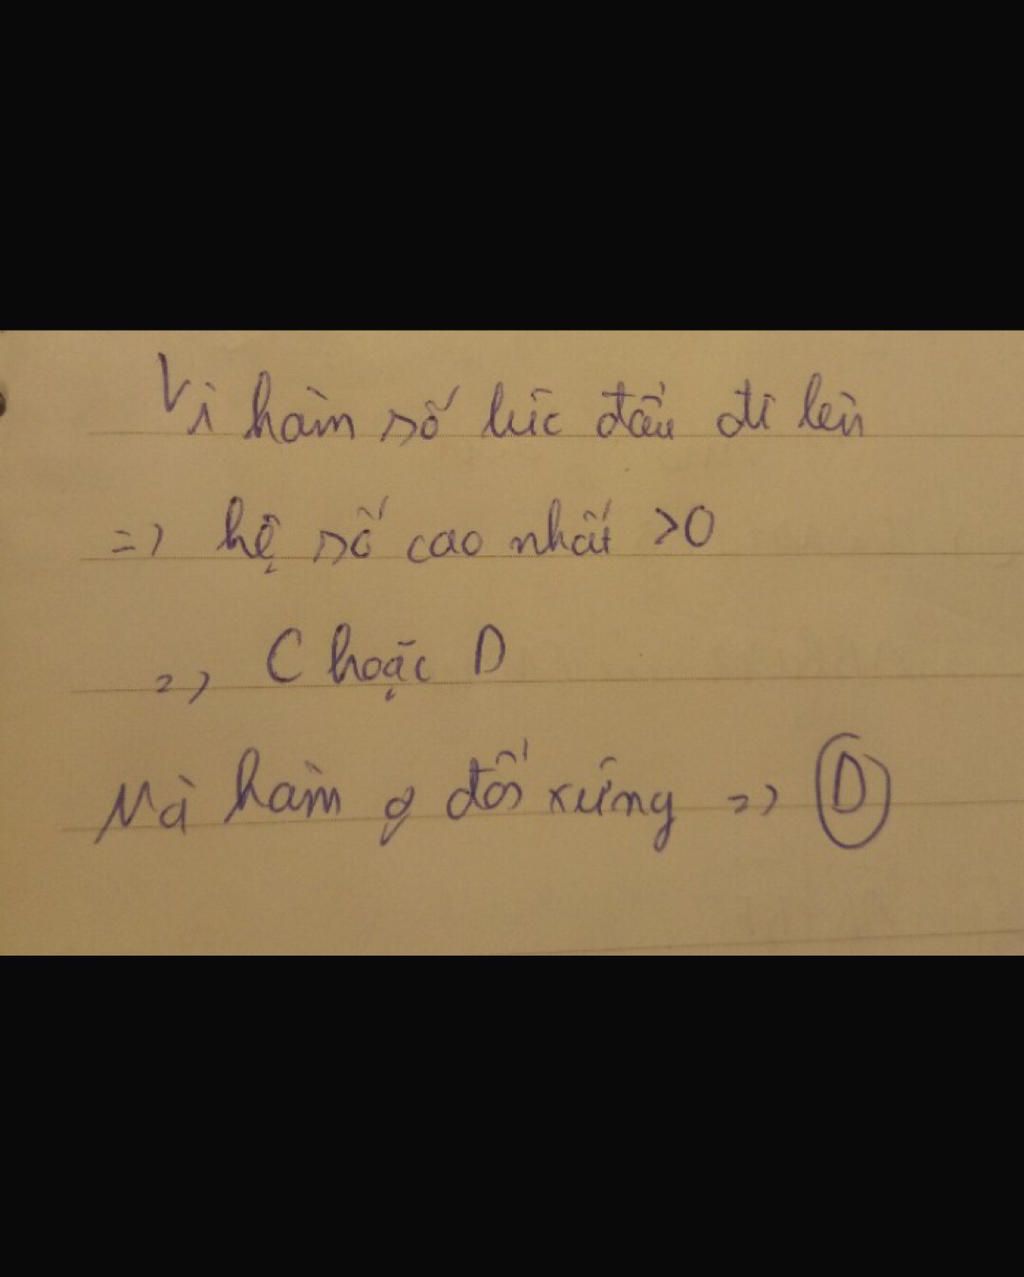 Vì hàm số lúc đầu đi lên
=> hệ số cao nhất >0
=> C hoặc D
Mà hàm o đối xứng => D